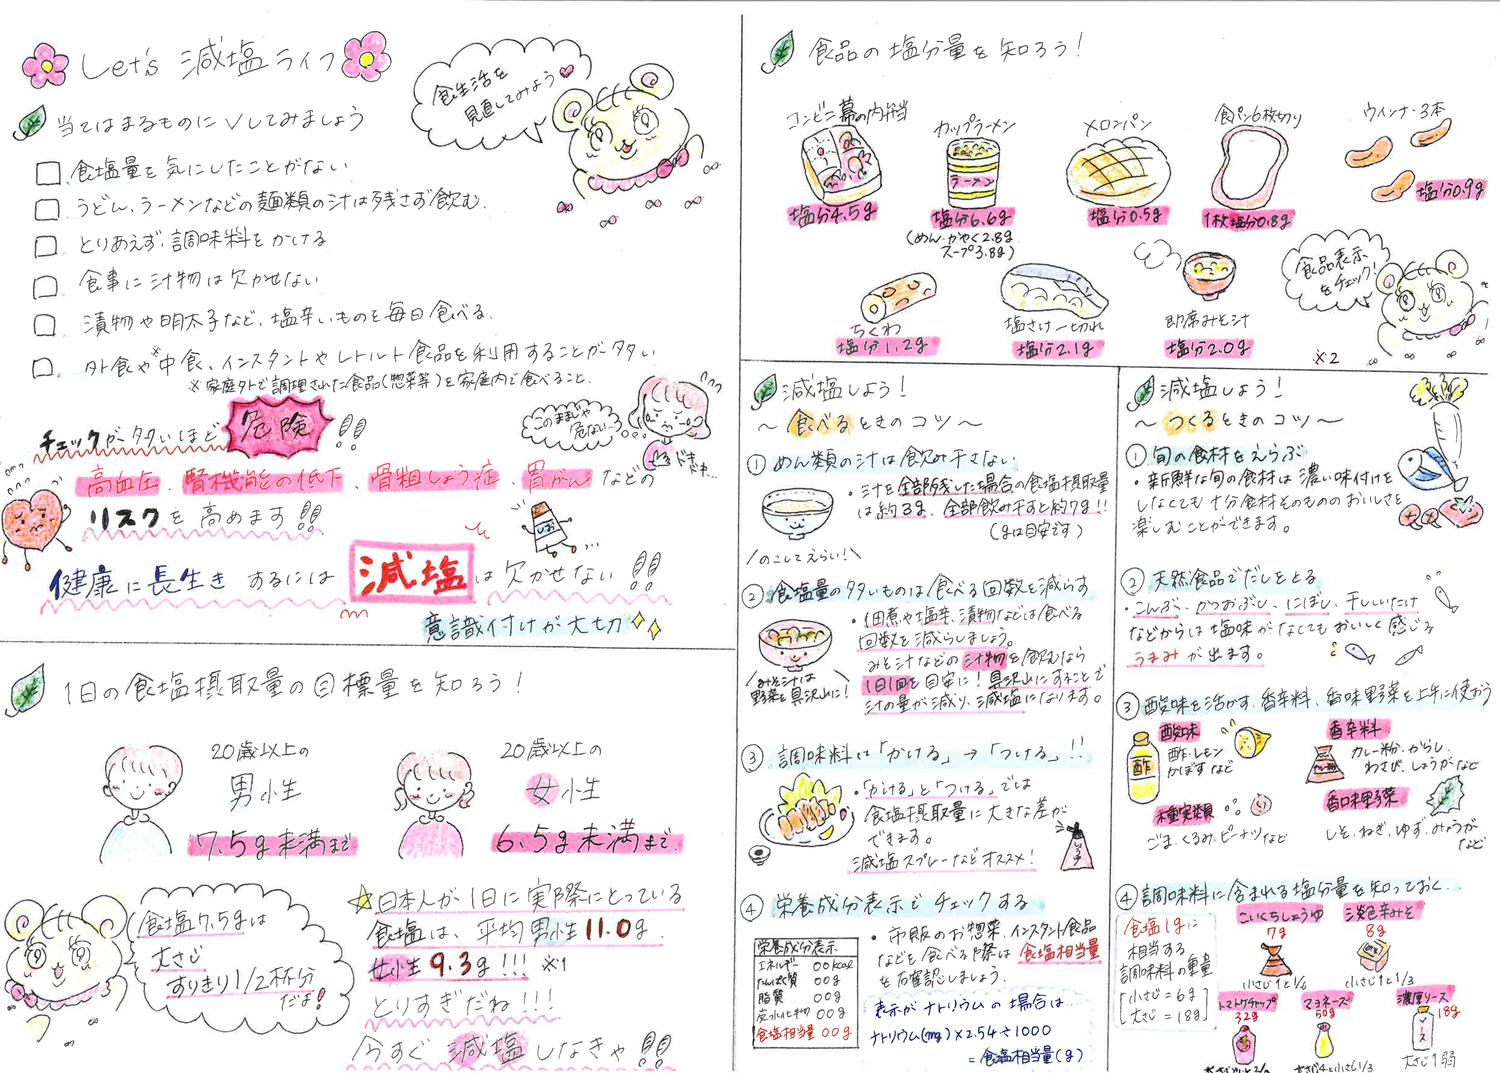 Let's 減塩ライフ
食生活を
見直してみよう
当てはまるものに✓してみましょう
食塩量を気にしたことがない
うどん、ラーメンなどの麺類の汁は残さず飲む
とりあえず、調味料をかける
食事に汁物は欠かせない
漬物や明太子など、塩辛いものを毎日食べる
外食や※中食、インスタントやレトルト食品を利用することが多い
※家庭外で調理された食品(惣菜等)を家庭内で食べること。
チェックが多いほど 危険 !!
このままじゃ
危ない…
ドキ
ドキ…
高血圧、腎機能の低下、骨粗しょう症、胃がん などの
リスクを高めます!!
しお
健康に長生き するには 減塩 は欠かせない!!
意識付けが大切
1日の食塩摂取量の目標量を知ろう!
20歳以上の
男性
7.5g未満まで
20歳以上の
女性
6.5g未満まで
食塩7.5gは
大さじ
すりきり1/2杯分
だよ!
☆日本人が1日に実際にとっている
食塩は、平均男性11.0g
女性9.3g!!! ※1
とりすぎだね!!!
今すぐ減塩しなきゃ!!
食品の塩分量を知ろう!
コンビニ幕の内弁当
塩分4.5g
カップラーメン
ラーメン
塩分6.6g
(めん・かやく2.8g
スープ3.8g)
メロンパン
塩分0.5g
食パン6枚切り
1枚塩分0.8g
ウインナー3本
塩分0.9g
ちくわ
塩分1.2g
塩さけ一切れ
塩分2.1g
即席みそ汁
塩分2.0g
食品表示
をチェック!
※2
減塩しよう!
~食べるときのコツ~
①めん類の汁は飲み干さない
・汁を全部残した場合の食塩摂取量
は約3g、全部飲み干すと約7g!!
(gは目安です)
\のこしてえらい!/
②食塩量の多いものは食べる回数を減らす
・佃煮や塩辛、漬物などは食べる
回数を減らしましょう。
みそ汁などの汁物を飲むなら
1日1回を目安に!具沢山にすることで
汁の量が減り、減塩になります。
みそ汁は
野菜を具沢山に!
③調味料は「かける」→「つける」!!
・「かける」と「つける」では
食塩摂取量に大きな差が
できます。
減塩スプレーなどオススメ!
④栄養成分表示でチェックする
栄養成分表示
エネルギー 00kcal
たんぱく質 00g
脂質 00g
炭水化物 00g
食塩相当量 00g
・市販のお惣菜、インスタント食品
などを食べる際は食塩相当量
を確認しましょう。
表示がナトリウムの場合は…
ナトリウム(mg)×2.54÷1000
=食塩相当量(g)
減塩しよう!
~つくるときのコツ~
①旬の食材をえらぶ
・新鮮な旬の食材は濃い味付けを
しなくても十分食材そのもののおいしさを
楽しむことができます。
②天然食品でだしをとる
・こんぶ、かつおぶし、にぼし、干ししいたけ
などからは塩味がなくてもおいしく感じる
うまみが出ます。
③酸味を活かす、香辛料、香味野菜を上手に使おう
酸味
酢・レモン
かぼすなど
酢
香辛料
カレー粉、からし、
わさび、しょうがなど
種実類
ごま、くるみ、ピーナツなど
香味野菜
しそ、ねぎ、ゆず、みょうが
など
④調味料に含まれる塩分量を知っておく
食塩1gに
相当する
調味料の重量
[小さじ=6g
大さじ=18g]
こいくちしょうゆ
7g
小さじ1と1/6
淡色辛みそ
8g
小さじ1と1/3
トマトケチャップ
32g
マヨネーズ
50g
大さじ4と小さじ1/3
濃厚ソース
18g
ソース
大さじ1弱